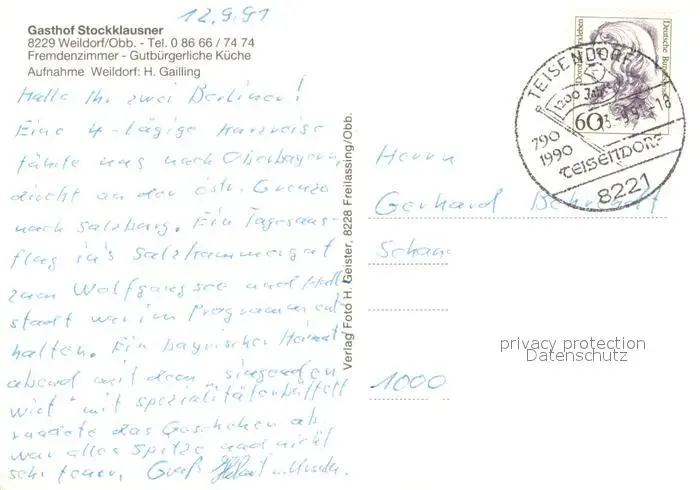 12.9.91
Gasthof Stockklausner
8229 Weildorf/Obb. - Tel. 0 86 66 / 74 74
Fremdenzimmer - Gutbürgerliche Küche
Aufnahme Weildorf: H. Gailling
Hallo Ihr zwei Berliner!
Eine 4-tägige Kurzreise
führte uns nach Oberbayern,
direkt an der östr. Grenze
nach Salzburg. Ein Tagesaus-
flug in's Salzkammergut
zum Wolfgangsee und Hall-
stadt war im Programm ent-
halten. Ein bayrischer Heimat-
abend mit dem "singenden
Wirt" mit Spezialitätenbüffett
rundete das Geschehen ab.
war alles Spitze und nicht
sehr teuer. Gruß
Verlag Foto H. Geister, 8228 Freilassing/Obb.
Deutsche Bundespost
60
TEISENDORF
1200 Jahre
790
1990
TEISENDORF
8221
Herrn
Gerhard
1000
privacy protection
Datenschutz